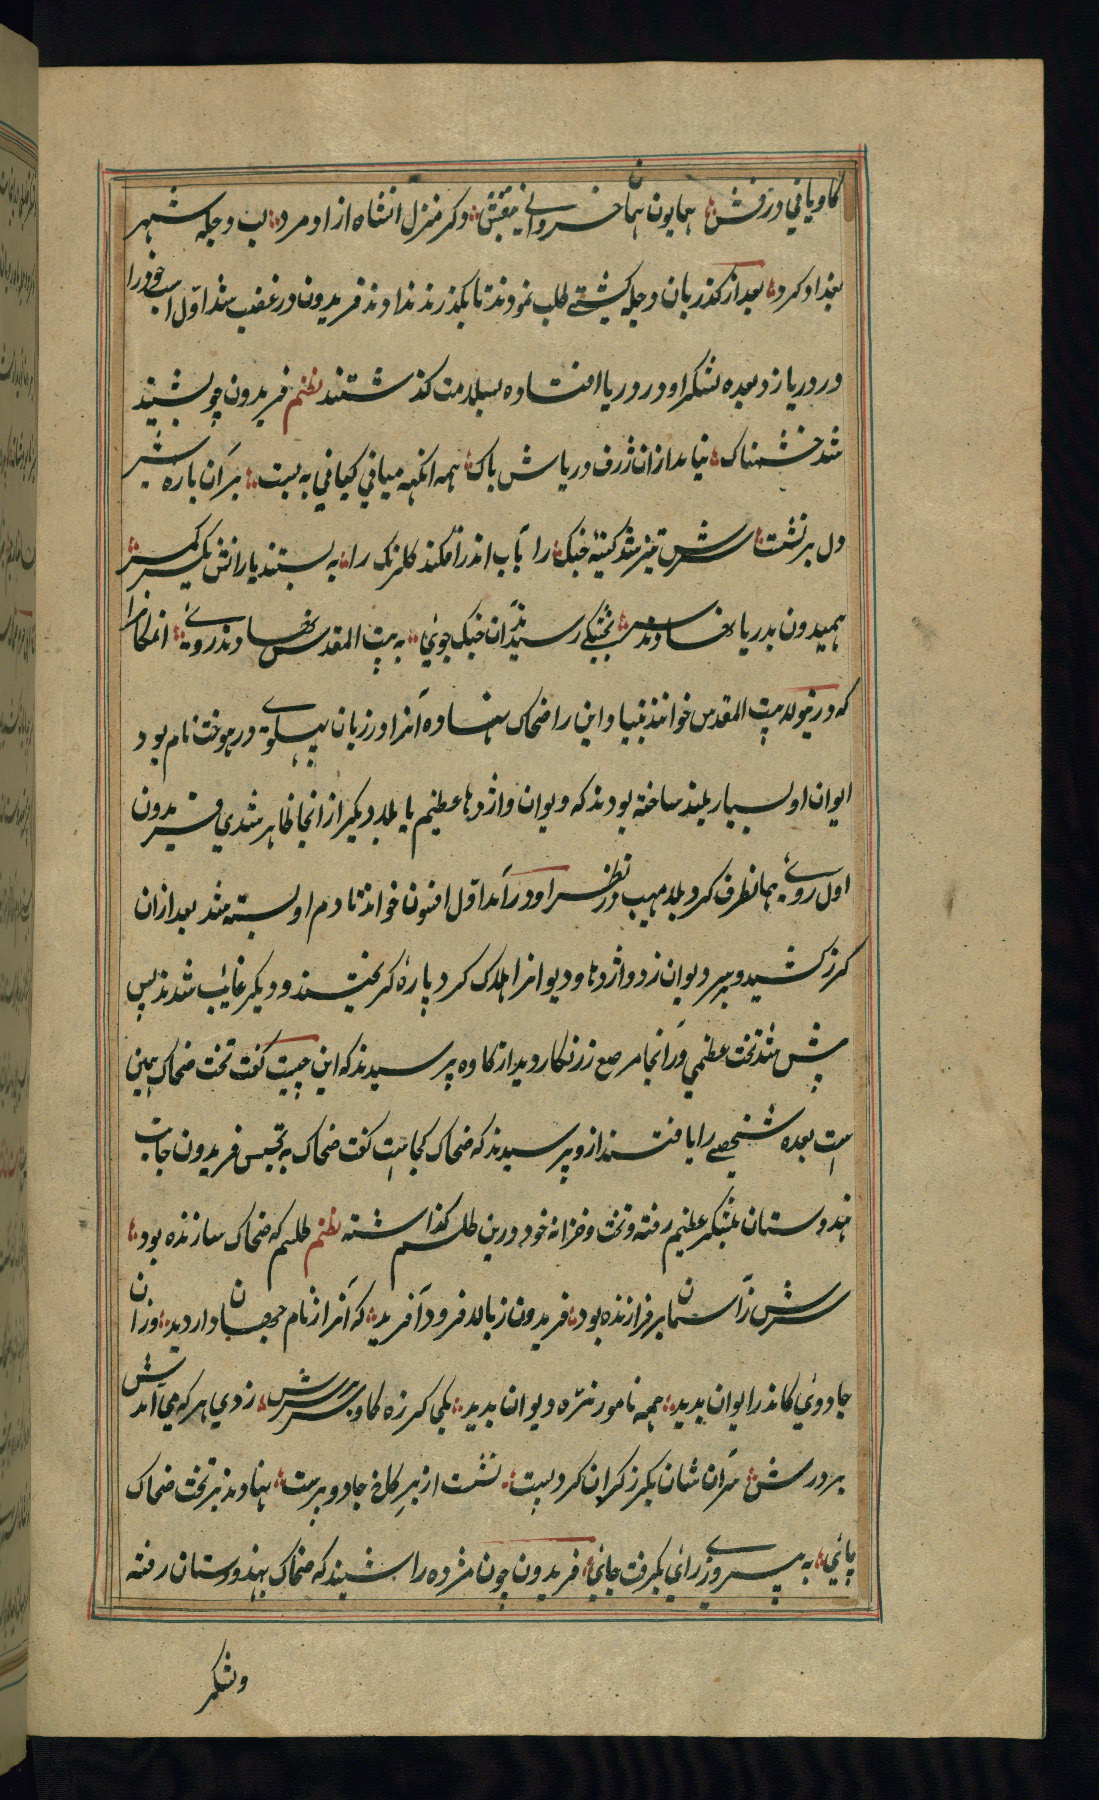 کاویانی درفش همایون همان خسروانی بنفش دکر منزل انشاه ازادمرد لب دجله شهر
بغداد کرد بعد از کذربان دجله کیشتی طلب نمودند تا بکذرند ندادند فریدون در غضب شد اوّل اسپ خود را
در دریا زد بعده لشکر او در دریا افتاده بسلامت کذشتند نظم فریدون چو بشنید
شد خشمناک نیامد ازان ژرف دریاش باک همه انکهه میانی کیانی به بست بران باره شیر
دل بر نشت سرش تیز شد کینه جنک را باب اندر افکند کلرنک را به بستند یارانش یکسر کمر
همیدون بدریا نهادند سر بخشکی رسیدند ان جنک جوی به بیت المقدس نهادند روی انمکانرا
که درینولد بیت المقدس خوانند بنیاد این را ضحاک نهاده آنرا در زبان پهلوی در هوخت نام بود
ایوان او بسیار بلند ساخته بودند که دیوان و اژدها عظیم یا بلا دیکر از انجا ظاهر شدی فریدون
اول روی همانطرف کرد بلا مهیب در نظر او در آمد اوّل افسون خواند تا دم او بسته شد بعد ازان
کرز کشید و بسر دیوان زد و اژدها و دیوانرا هلاک کرد پارهٔ کریختند و دیکر غایب شدند پس
پیش شد تخت عظمی در انجا مرصع زرنکار دید از کاوه پرسیدند که این چیست کفت تخت ضحاک همین
است بعده شخصی را یافتند ازو پرسیدند که ضحاک کجا است کفت ضحاک به تجسس فریدون جانب
هندوستان بلشکر عظیم رفته و تخت و خزانه خود درین طلسم کذاشته نظم طلسم که ضحاک سازنده بود
سرش ز آسمان بر فرازنده بود فریدون ز بالا فرود آفرید که آنرا از نام جهان دار دید وزان
جادوی کاندر ایوان بدید همه نامور نره دیوان بدید یکی کرزه کاو بر سرش زدی هر که می آمدش
بر درش سران شان بکرز کران کرد پست نشت از بر کاخ جادو پرست نهادند بر تخت ضحاک
پائی به پیروزی رای بکرفت جای فریدون چون مژده را شنید که ضحاک بهندوستان رفته
ولشکر